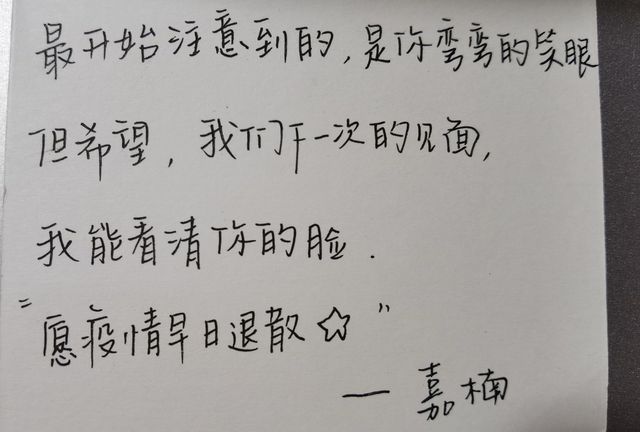 最开始注意到的,是你弯弯的笑眼
但希望,我们下一次的见面,
我能看清你的脸.
"愿疫情早日退散☆"
— 嘉楠